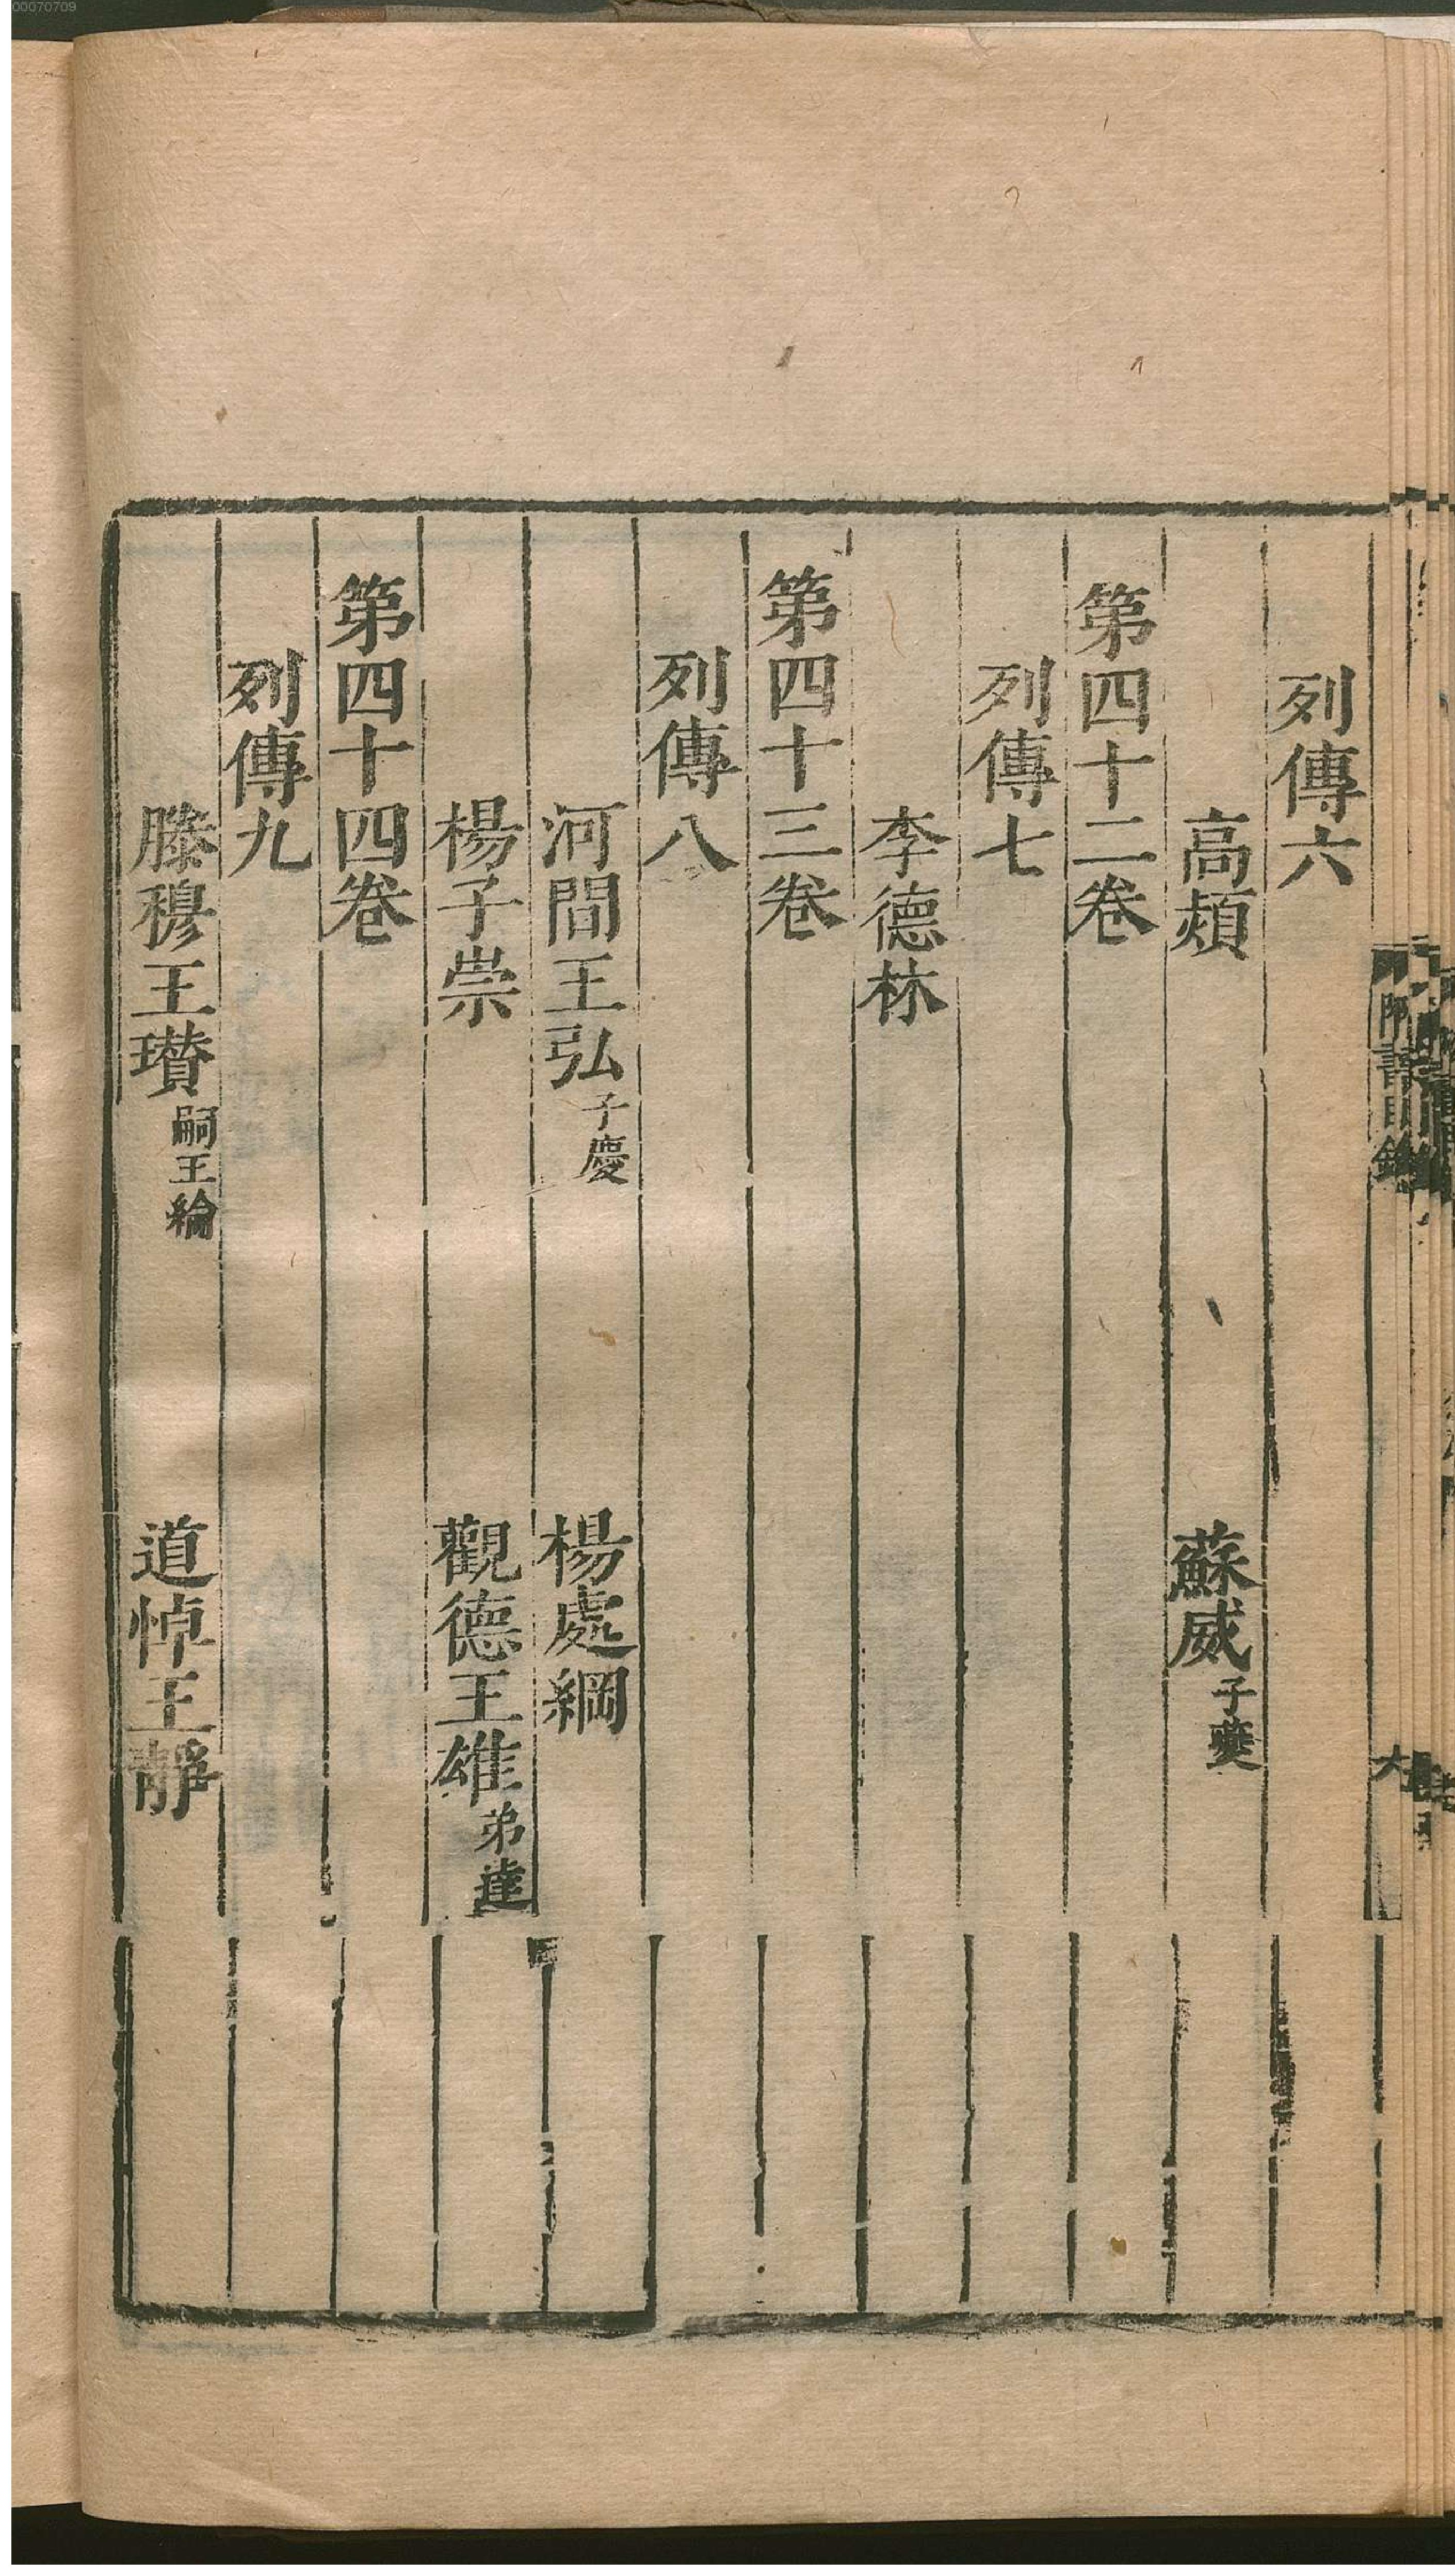 00070709
隋書目錄
列傳六
高熲 蘇威子夔
第四十二卷
列傳七
李德林
第四十三卷
列傳八
河間王弘子慶 楊處綱
楊子崇 觀德王雄弟達
第四十四卷
列傳九
滕穆王瓚嗣王綸 道悼王靜